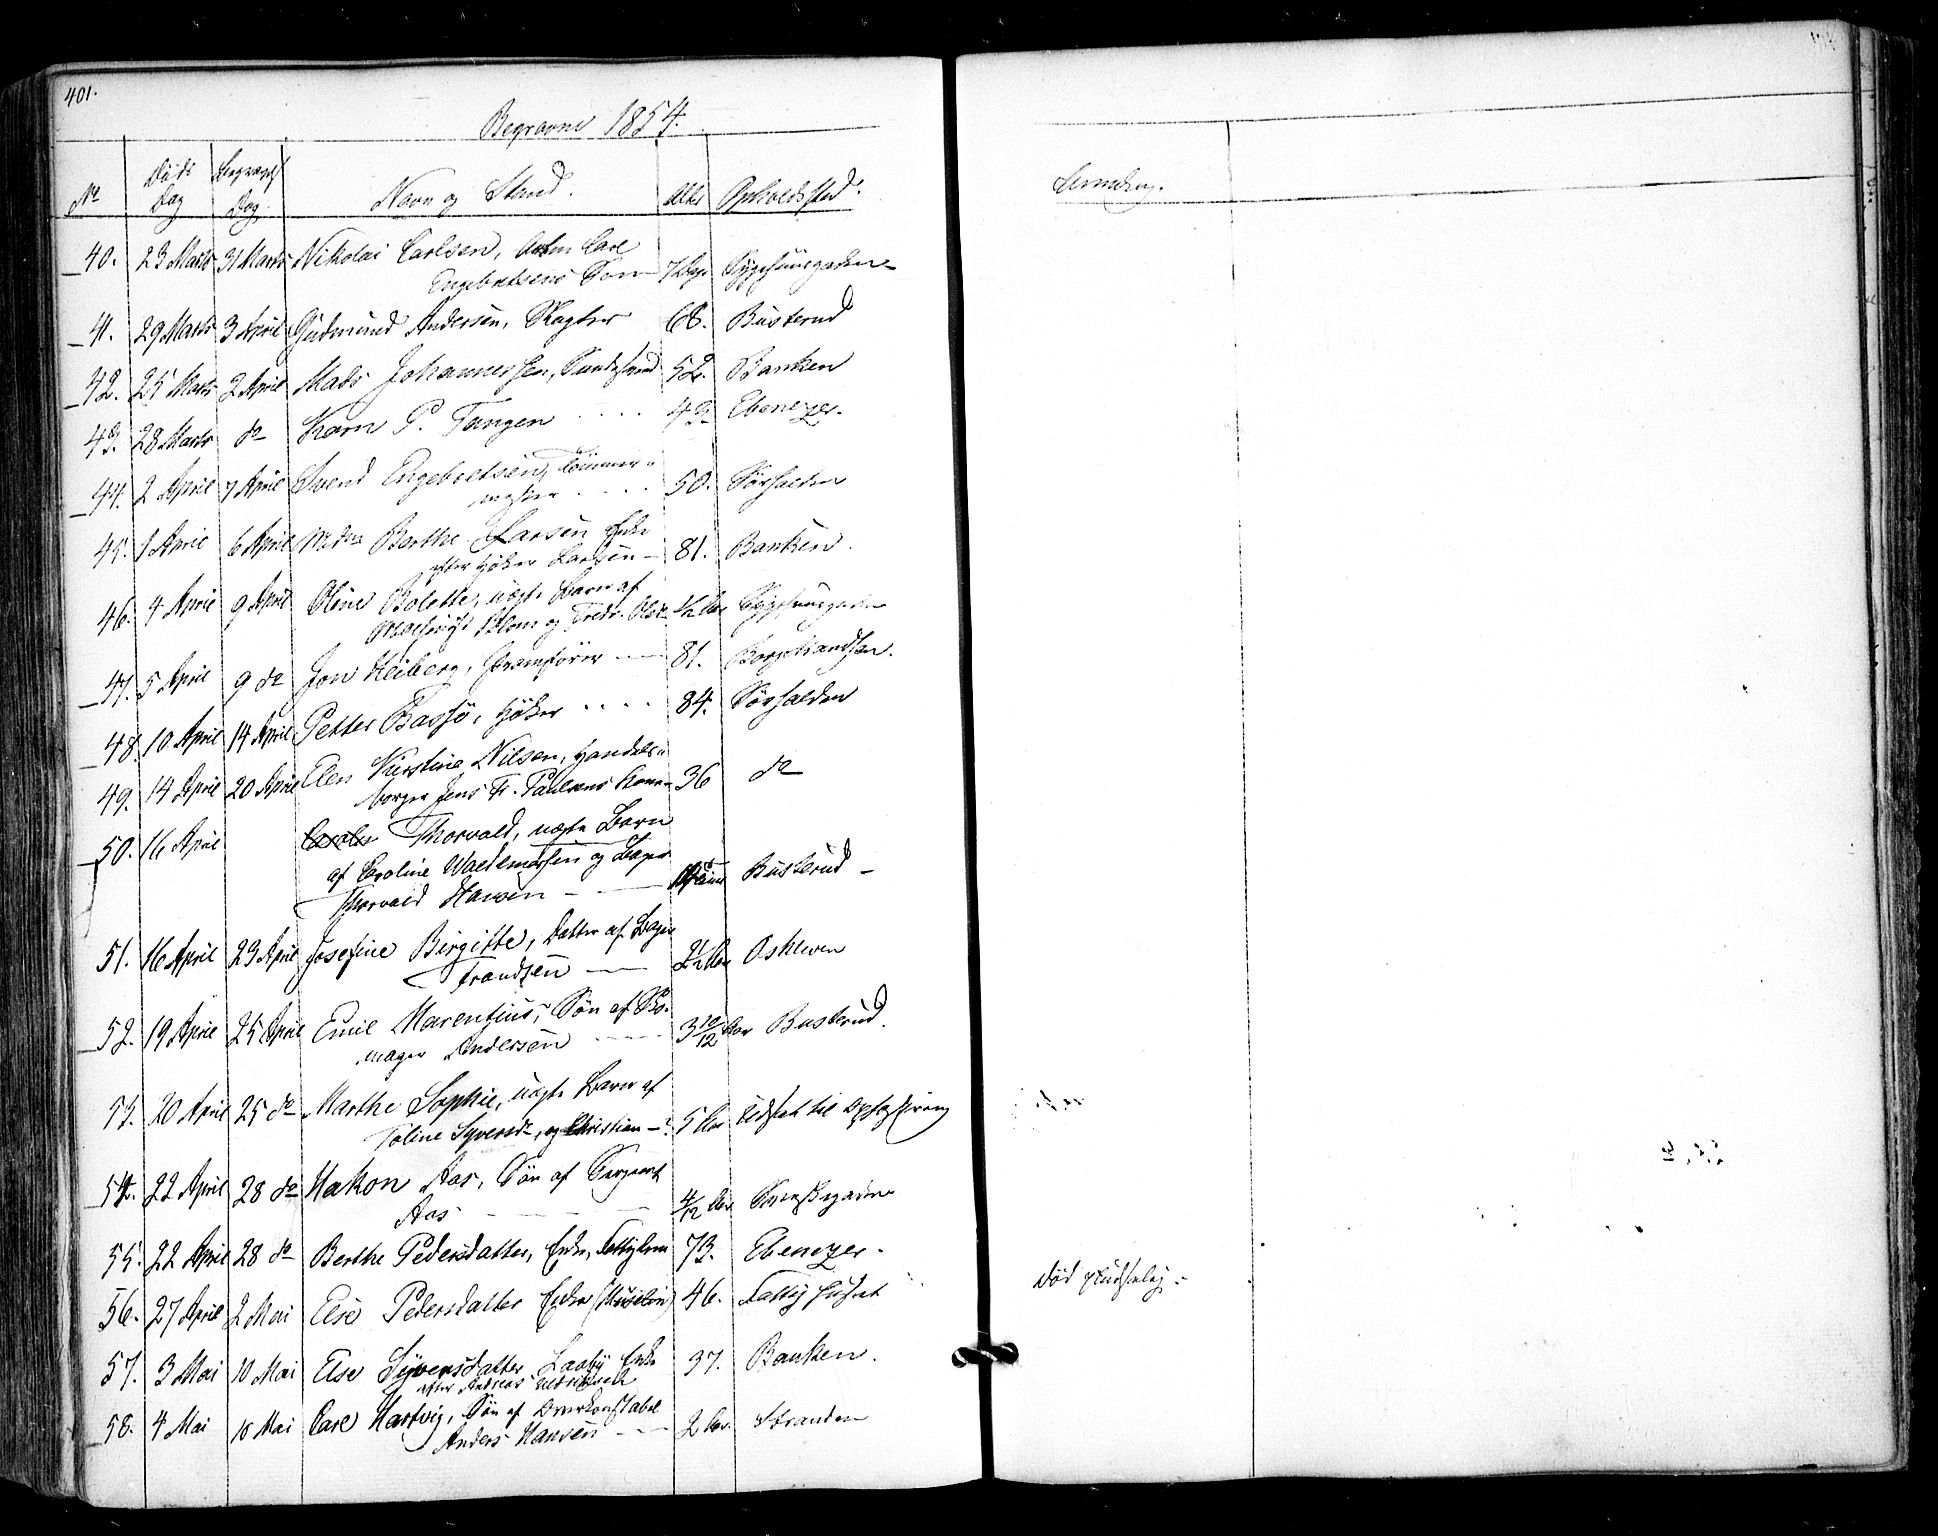 401.
Begravne 1854.
No Døds Dag Begravels Dag Navn og Stand. Alder Opholdssted. Anmrkng.
40. 23 Marts 31 Marts Nikolai Carlsen, Carl
Engebretsens Søn 7 Dage Sygehuusgaden
41. 29 Marts 3 April Gudmund Andersen, Slagter 68. Busterud
42. 25 Marts 2 April Mads Johannessen, 52. Banken
43. 28 Marts do Karn P. Tangen 43 Ebenezer.
44. 2 April 7 April Svend Engebretsen, Tömmer
mester 50. Sörhalden
45. 1 April 6 April Mdme Berthe Larsen Enke
efter Høker Larsen 81. Banken.
46. 4 April 9 April Oline Bolette, uægte Barn af
Blom og Fredr. Olsen 1/2 Aar Sygehuusgaden
47. 5 April 9 do Jon Heiberg, 81. Borgermandssen.
48. 10 April 14 April Petter Bassö, Høker 84. Sörhalden
49. 14 April 20 April Elen Kirstine Nilsen, Handels
borger Jens Fr. Paulsens Kone 36 do
50. 16 April Thorvald, uægte Barn
af Caroline Waldemarsen og Bager
Thorvald Hansen Busterud
51. 16 April 23 April Josefine Birgitte, Datter af Bager
Frandsen 2 1/2 Aar Oskleven
52. 19 April 25 April Emil Marentius, Søn af Sko-
mager Andersen 3 10/12 Aar Busterud.
53. 20 April 25 do Marthe Sophie, uægte Barn af
Toline Syversd., og Christian - ? 5 Aar Udsat til Opfostring
54. 22 April 28 do Hakon Aas, Søn af Sergeant
Aas 4/12 Aar
55. 22 April 28 do Berthe Pedersdatter, Enke, Fattiglem 73. Ebenezer.
56. 27 April 2 Mai Else Pedersdatter Enke 46. Fattighuset Död pludselig.
57. 3 Mai 10 Mai Else Syversdatter Laaby Enke
efter Andreas 37. Banken.
58. 4 Mai 10 Mai Carl Hartvig, Søn af Overkonstabel
Anders Hansen 2 Aar. Stranden